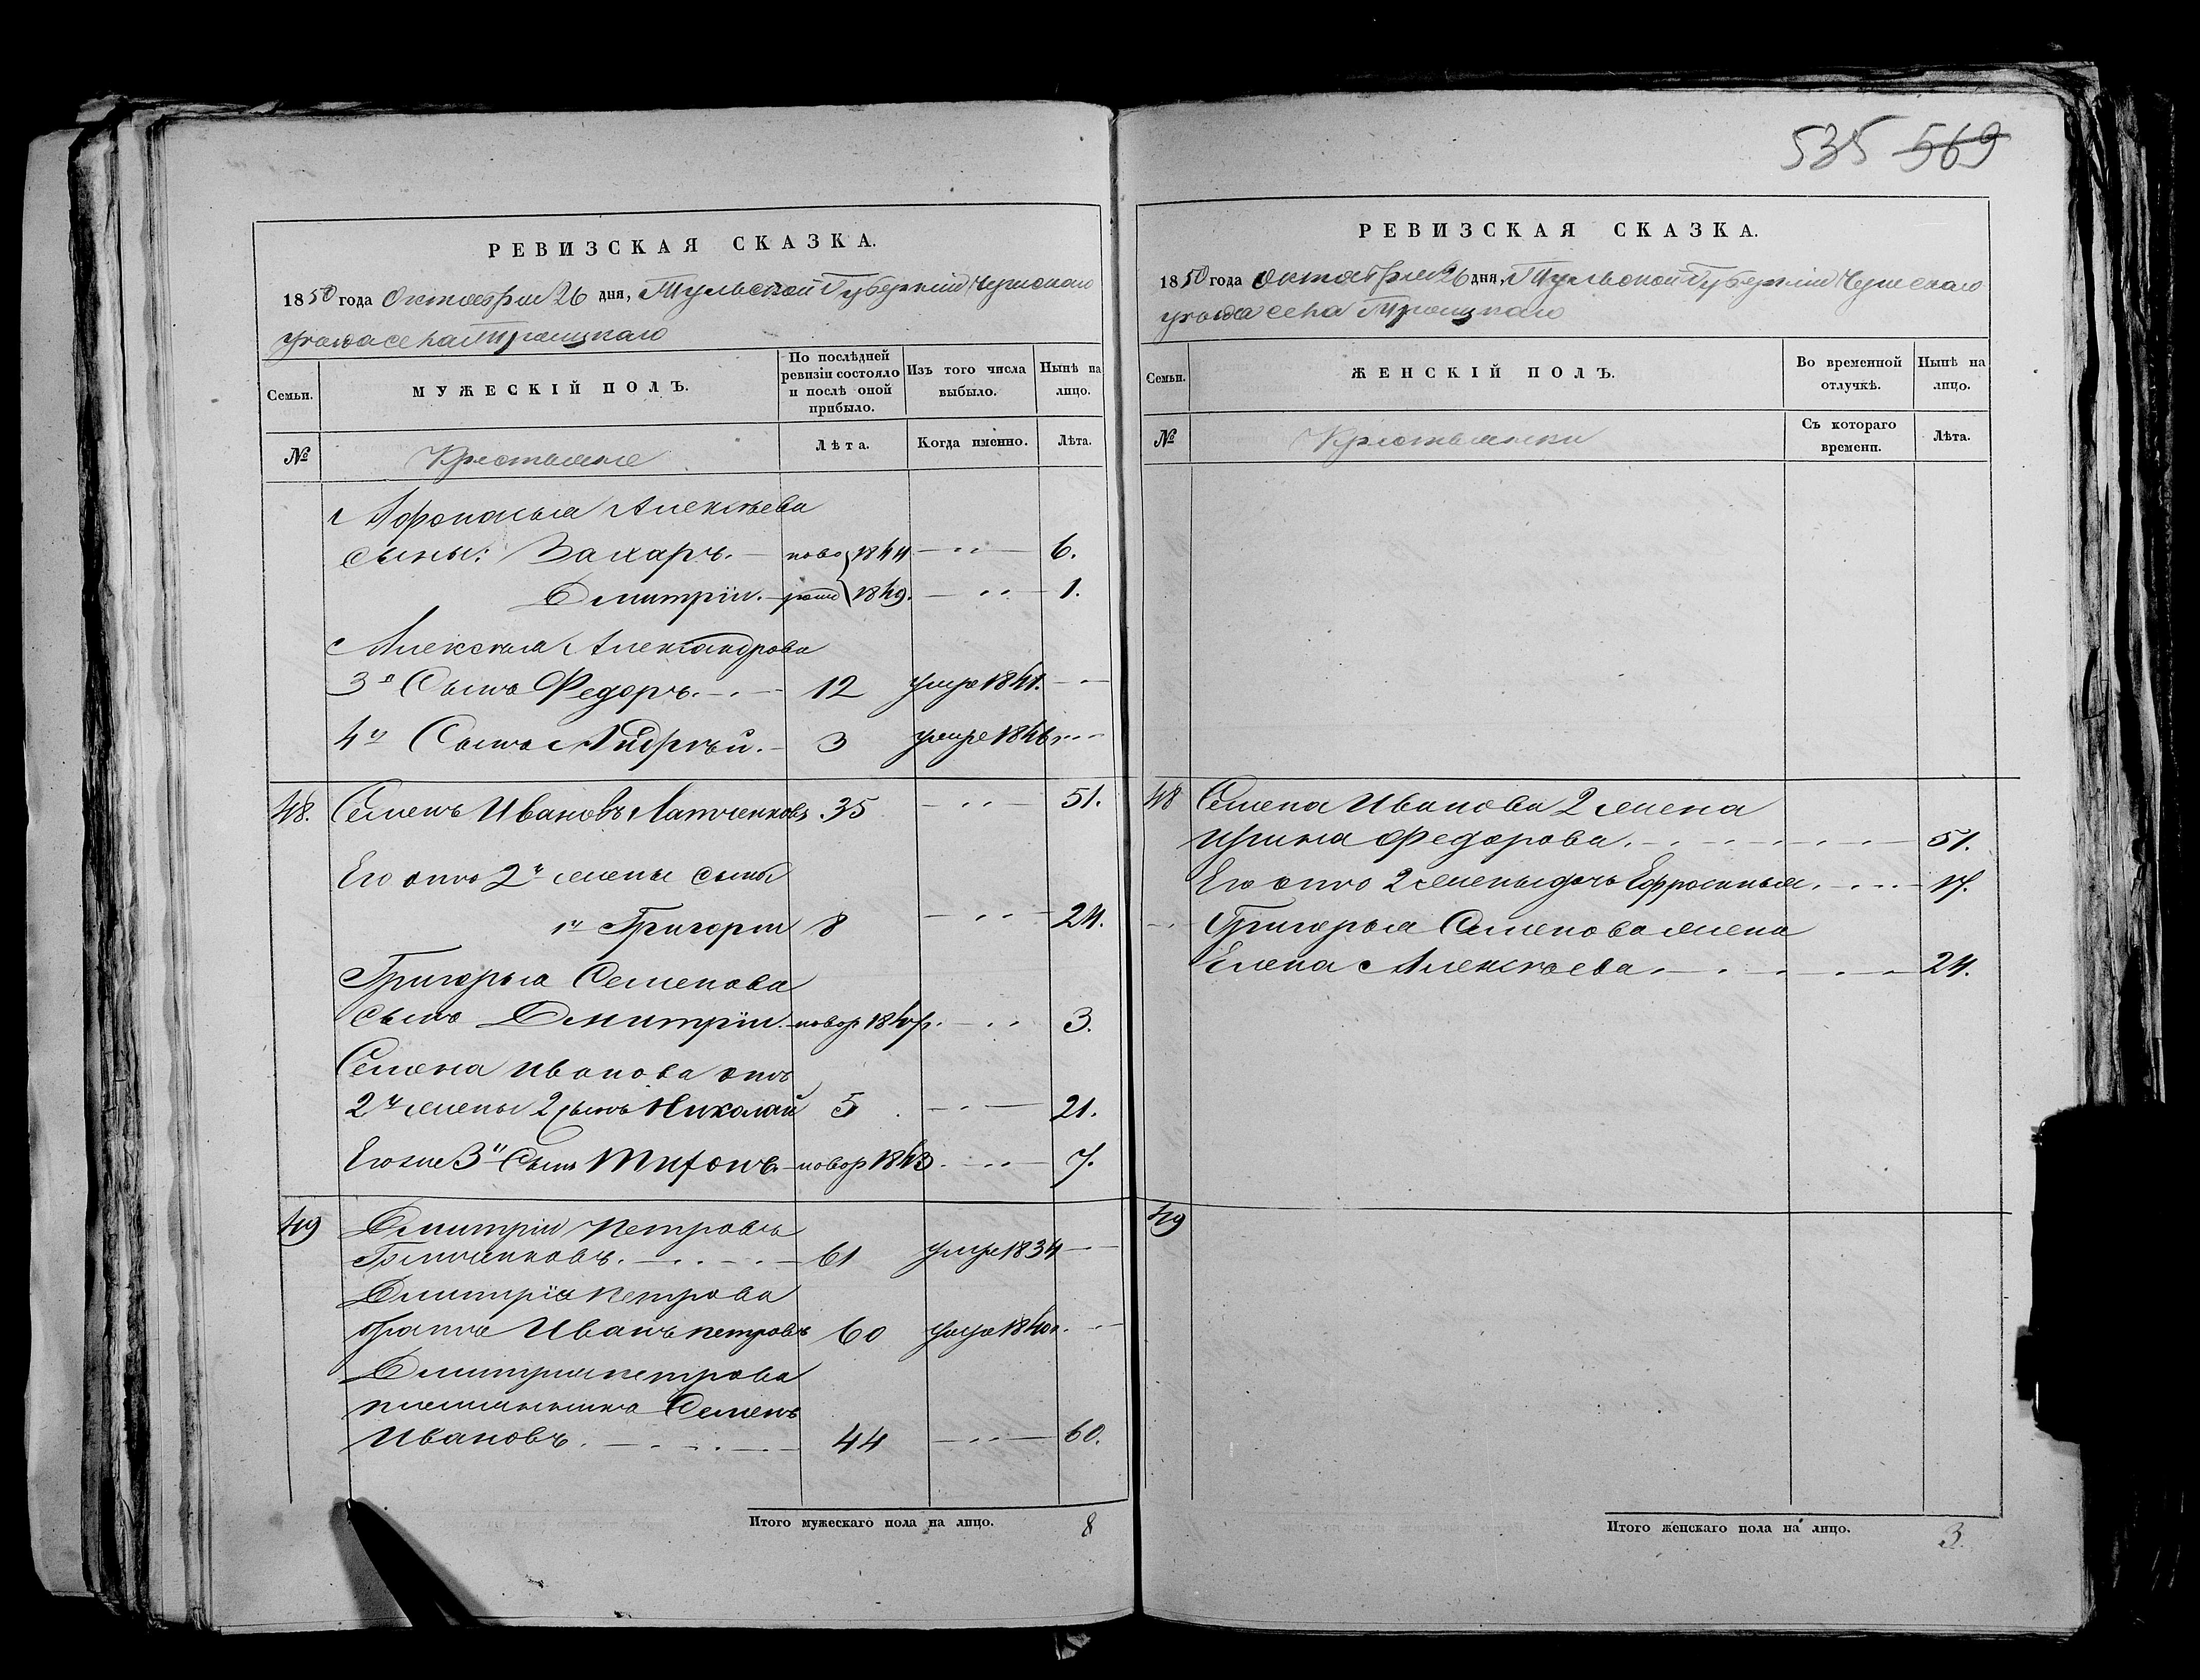 535 569
РЕВИЗСКАЯ СКАЗКА.
1850 года Октября 26 дня, Тульской Губернии Чернскаго
уезда села Троицкаго
Семьи.
МУЖЕСКІЙ ПОЛЪ.
По послѣдней ревизіи состояло и послѣ оной прибыло.
Изъ того числа выбыло.
Нынѣ на лицо.
№
Крестьяне
Лѣта.
Когда именно.
Лѣта.
Афонасья Алексѣева
сыны: Захаръ. ново 1844 6.
Дмитріи. рожд 1849. 1.
Алексѣя Александрова
3й Сынъ Федоръ. 12 умре 1841.
4й Сынъ Андрѣй. 3 умре 1846
48. Семенъ Ивановъ 35 51.
Его отъ 2й жены сыны
1й Григори 8 24.
Григорья Семенова
сынъ Дмитріи. новор 1847. 3.
Семена Иванова отъ
2й жены 2 сынъ Николай 5 21.
Его же 3й Сынъ Тифонъ. новор 1843. 7.
49 Дмитріи Петровъ
61 умре 1834
Дмитрія Петрова
братъ Иванъ петровъ 60 умре 1840.
Дмитрия петрова
племянникъ Семенъ
Ивановъ. 44 60.
Итого мужескаго пола на лицо. 8
РЕВИЗСКАЯ СКАЗКА.
1850 года Октября 26 дня, Тульской Губерніи Чернскаго
уезда села Троицкаго
Семьи.
ЖЕНСКІЙ ПОЛЪ.
Во временной отлучкѣ.
Нынѣ на лицо.
№
Крестьянки
Съ котораго времени.
Лѣта.
48 Семена Иванова 2 жена
Ирина Федорова. 51.
Его отъ 2 жены дочь Ефросинья. 17.
Григорья Семенова жена
Елена Алексѣева. 24.
49
Итого женскаго пола на лицо. 3.